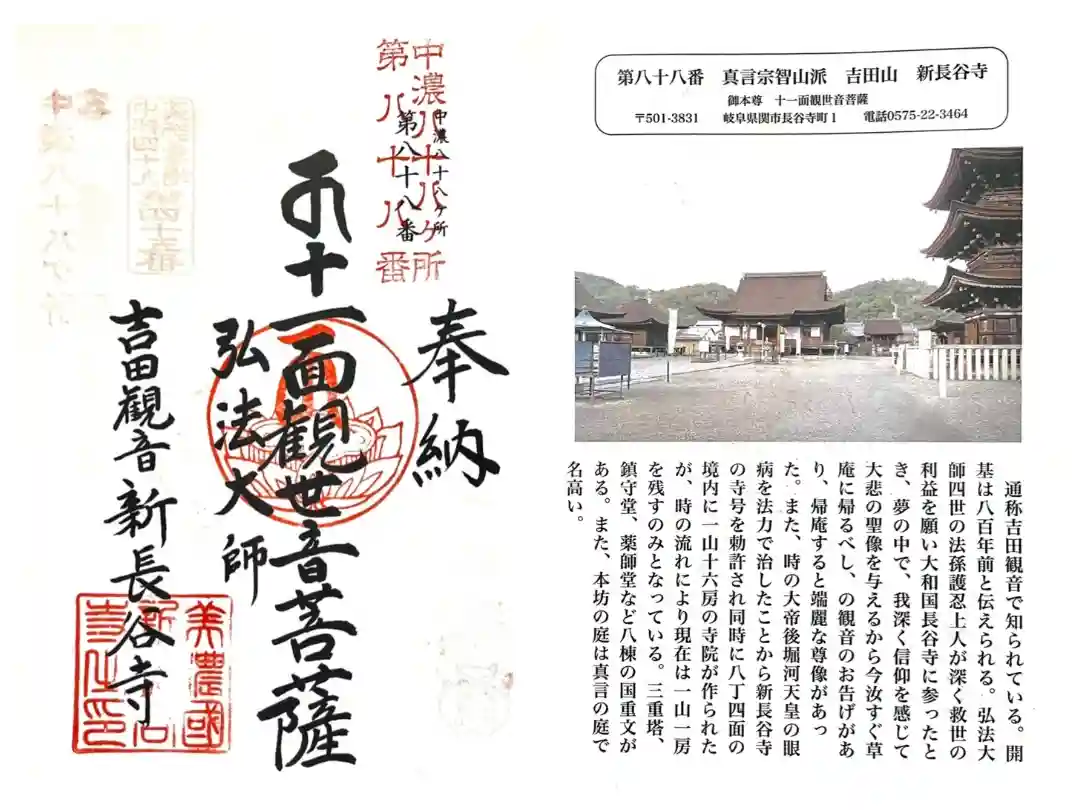 第八十八番 真言宗智山派 吉田山 新長谷寺
御本尊 十一面観世音菩薩
〒501-3831 岐阜県関市長谷寺町1 電話0575-22-3464
通称吉田観音で知られている。開
基は八百年前と伝えられる。弘法大
師四世の法孫護忍上人が深く救世の
利益を願い大和国長谷寺に参ったと
き、夢の中で、我深く信仰を感じて
大悲の聖像を与えるから今汝すぐ草
庵に帰るべし、の観音のお告げがあ
り、帰庵すると端麗な尊像があっ
た。また、時の大帝後堀河天皇の眼
病を法力で治したことから新長谷寺
の寺号を勅許され同時に八丁四面の
境内に一山十六房の寺院が作られた
が、時の流れにより現在は一山一房
を残すのみとなっている。三重塔、
鎮守堂、薬師堂など八棟の国重文が
ある。また、本坊の庭は真言の庭で
名高い。
奉納
中濃八十八ヶ所
第八十八番
中濃八十八ヶ所
第八十八番
十一面観世音菩薩
弘法大師
吉田観音新長谷寺
美濃國
新長谷
寺之印